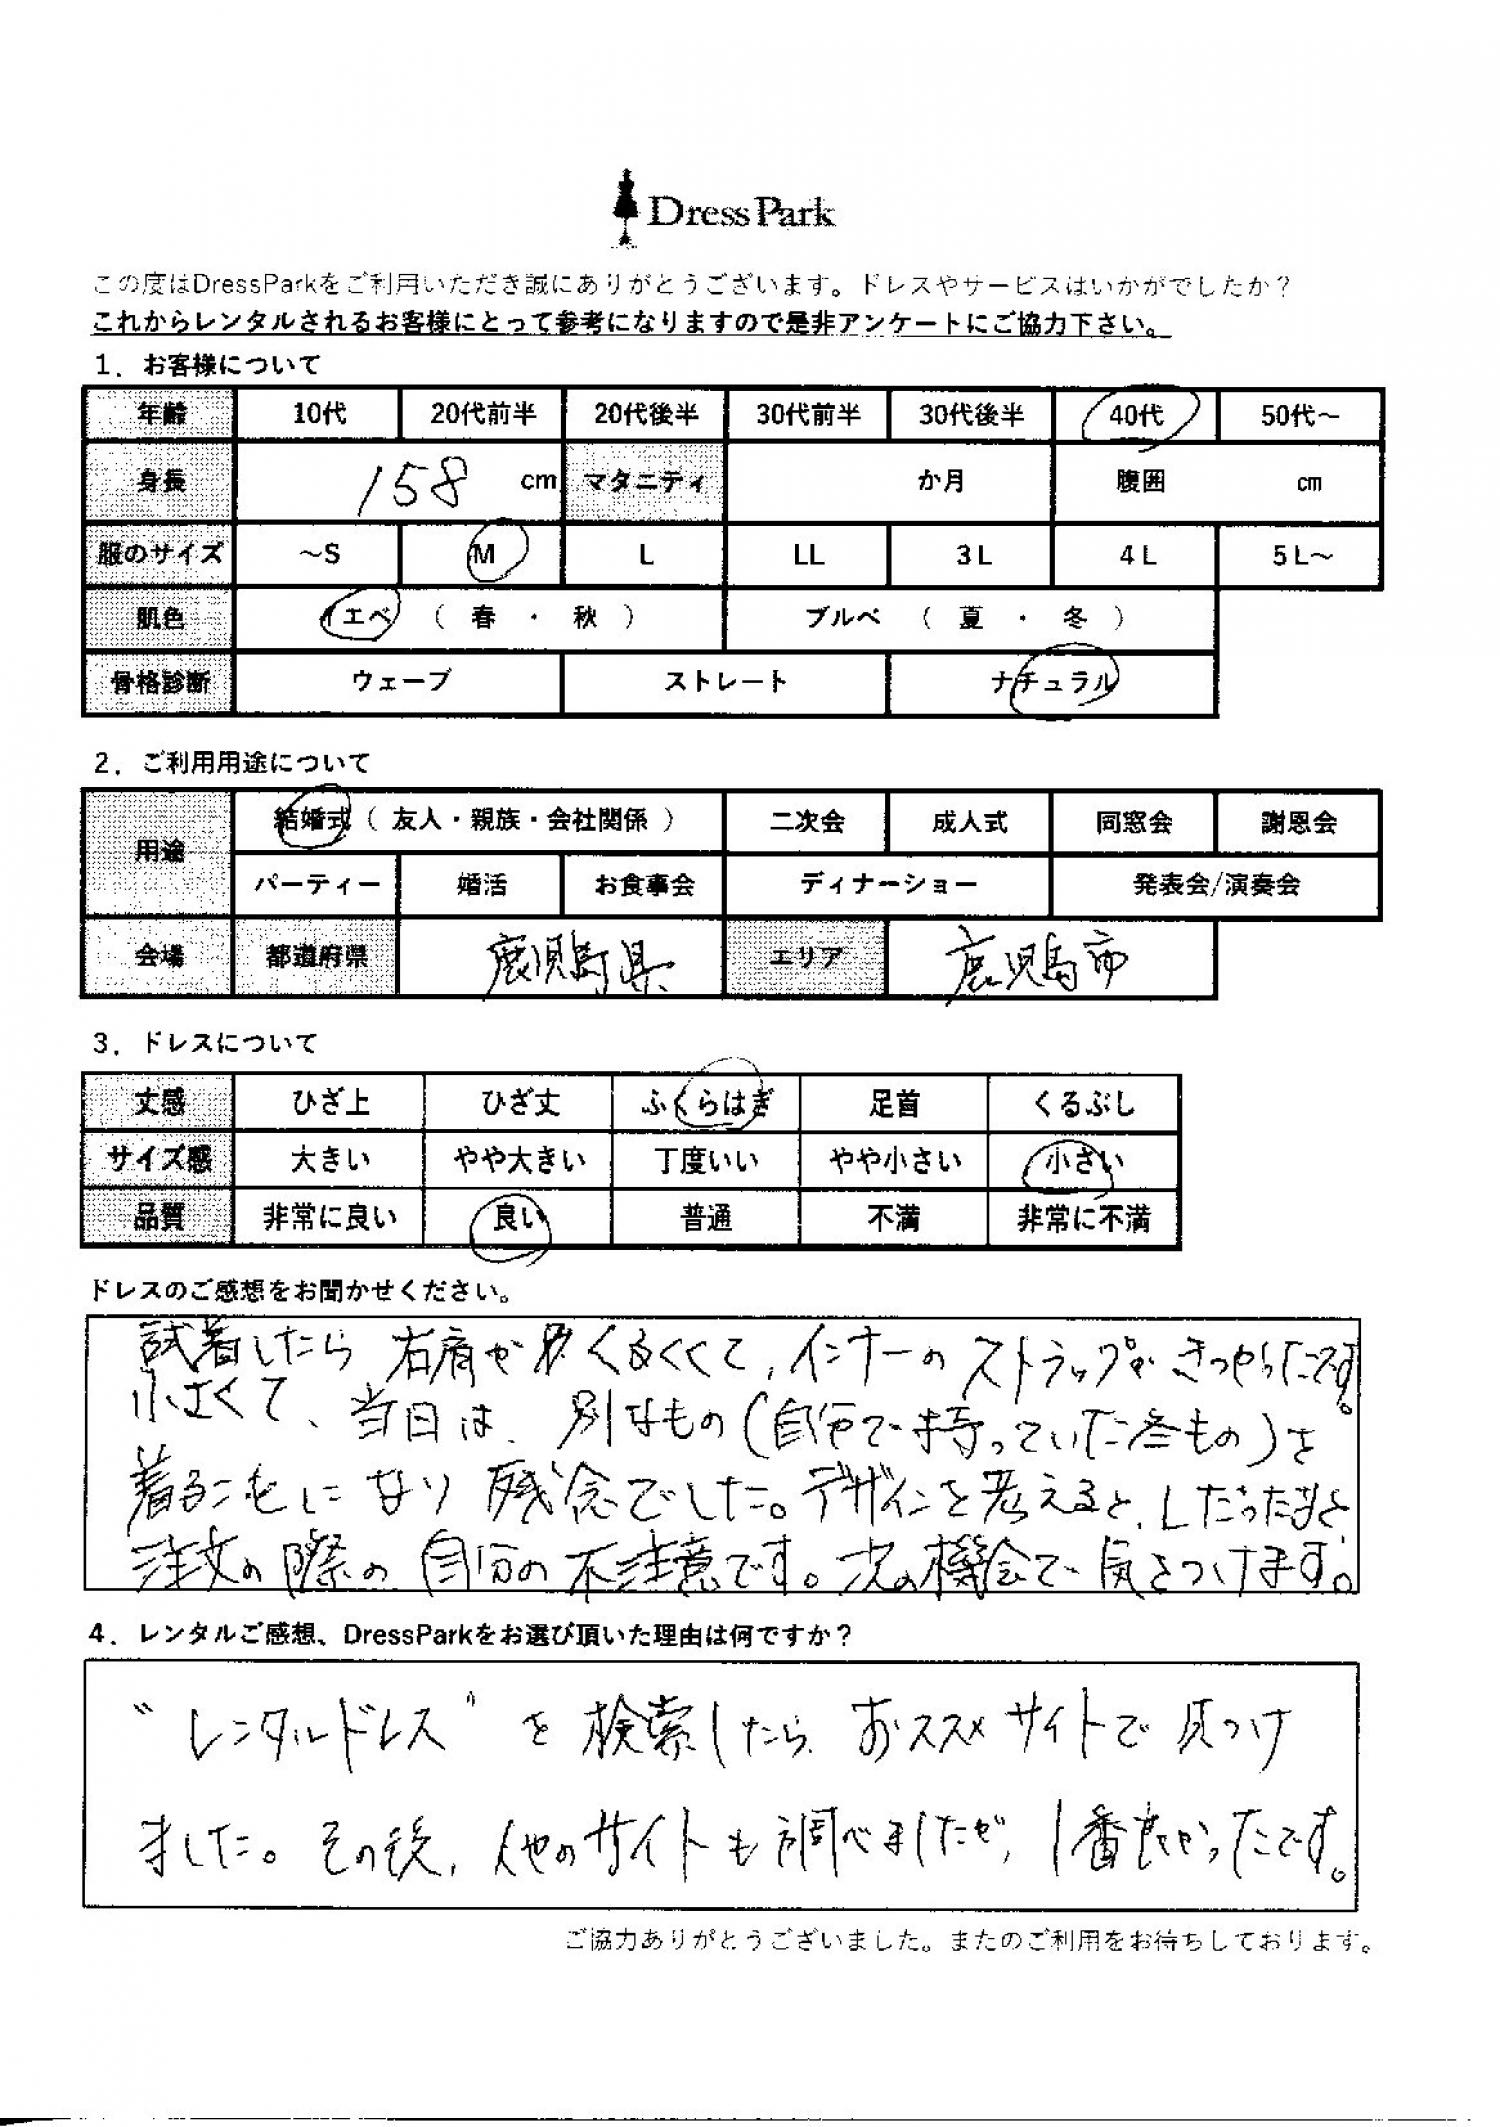 Dress Park
この度はDressParkをご利用いただき誠にありがとうございます。ドレスやサービスはいかがでしたか？
これからレンタルされるお客様にとって参考になりますので是非アンケートにご協力下さい。
１．お客様について
年齢 10代 20代前半 20代後半 30代前半 30代後半 40代 50代～
身長 158 cm マタニティ か月 腹囲 cm
服のサイズ ～S M L LL 3L 4L 5L～
肌色 イエベ （ 春 ・ 秋 ） ブルベ （ 夏 ・ 冬 ）
骨格診断 ウェーブ ストレート ナチュラル
２．ご利用用途について
用途 結婚式（ 友人・親族・会社関係 ） 二次会 成人式 同窓会 謝恩会
パーティー 婚活 お食事会 ディナーショー 発表会/演奏会
会場 都道府県 鹿児島県 エリア 鹿児島市
３．ドレスについて
丈感 ひざ上 ひざ丈 ふくらはぎ 足首 くるぶし
サイズ感 大きい やや大きい 丁度いい やや小さい 小さい
品質 非常に良い 良い 普通 不満 非常に不満
ドレスのご感想をお聞かせください。
試着したら 右肩が くて、インナーの ストラップが きつかったです。
小さくて、当日は、別なもの（自分で持っていた冬もの）を
着ることになり 残念でした。デザインを考えると、
注文の際の 自分の不注意です。次の機会で気をつけます。
４．レンタルご感想、DressParkをお選び頂いた理由は何ですか？
"レンタルドレス"を検索したら、おススメサイトで見つけ
ました。その後、他のサイトも調べましたが、1番良かったです。
ご協力ありがとうございました。またのご利用をお待ちしております。